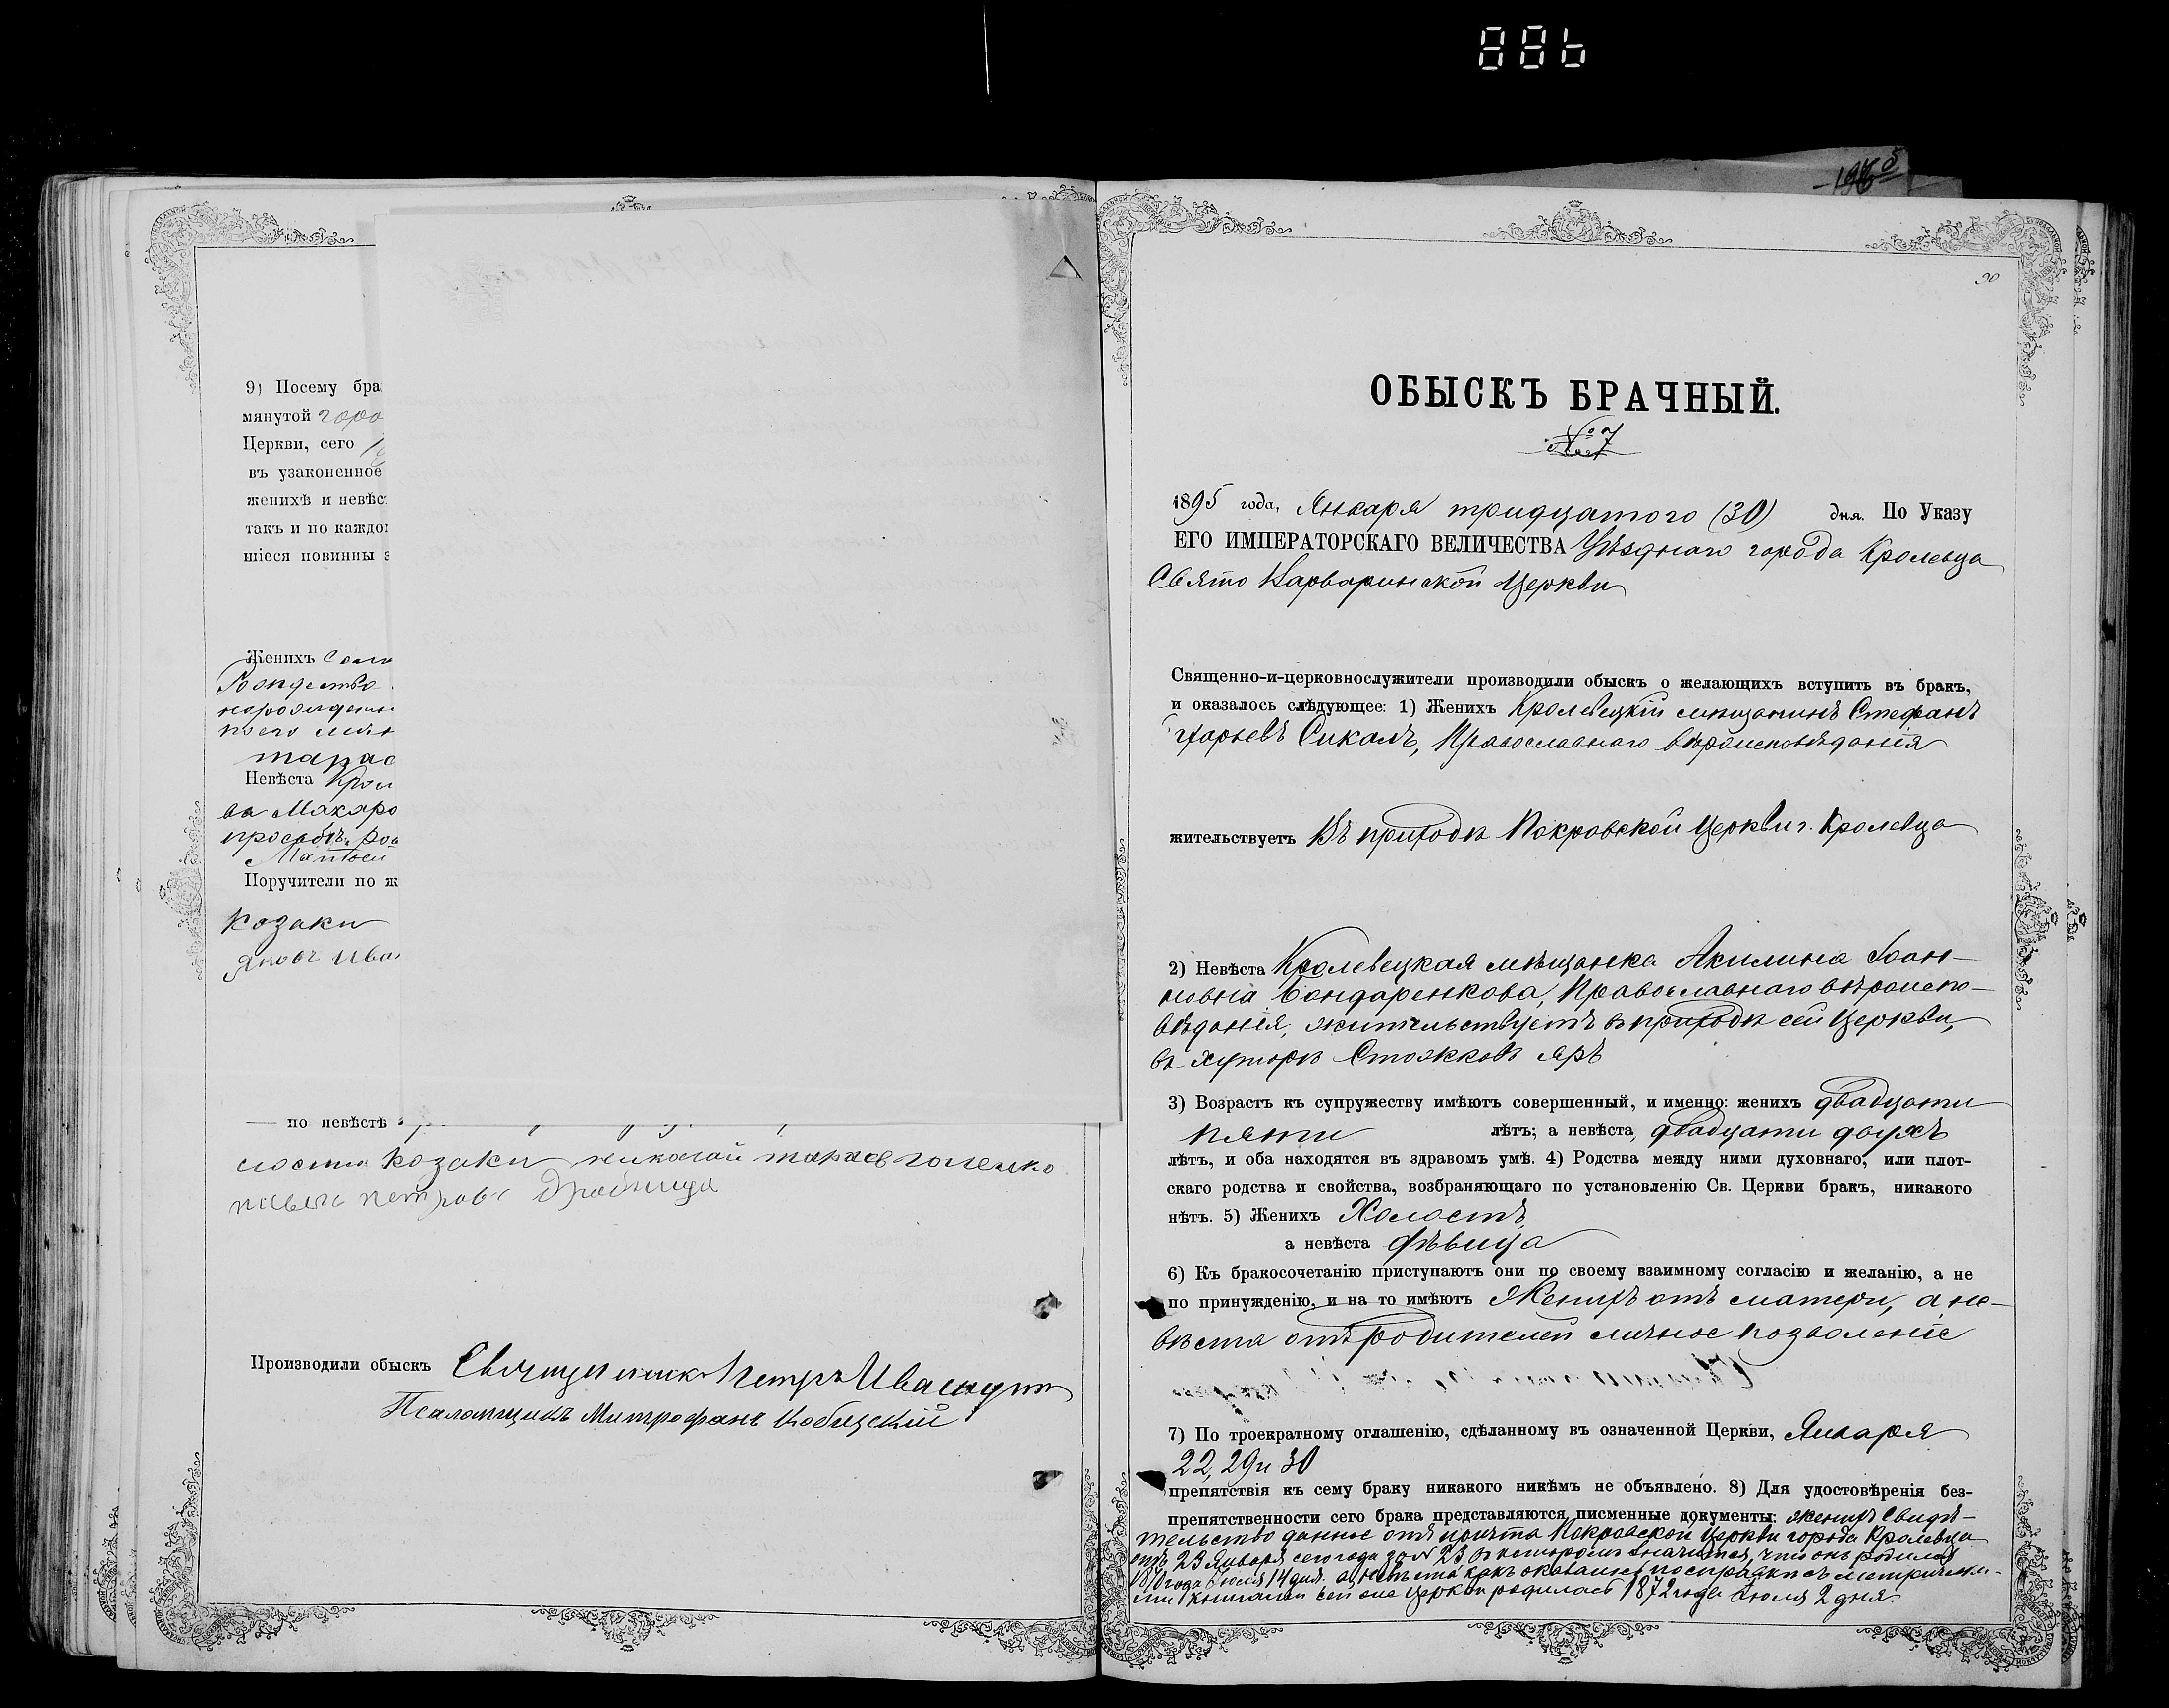 986
9) Посему бра
мянутой горо
Церкви, сего
въ узаконенное
женихѣ и невѣс
такъ и по каждо
шіеся повинны
Женихъ
Рождество
тарас
Невѣста Крол
ва Макаро
Поручители по ж
козаки
Яковъ Ива
— по невѣстѣ
козаки николай тарасов
петровъ
Производили обыскъ Священникъ Петръ
Псаломщикъ Митрофанъ
30
ОБЫСКЪ БРАЧНЫЙ.
№ 7
1895 года, Января тридцатого (30) дня. По Указу
ЕГО ИМПЕРАТОРСКАГО ВЕЛИЧЕСТВА Уѣзднаго города Кролевца
Свято Варваринской Церкви
Священно-и-церковнослужители производили обыскъ о желающихъ вступить въ бракъ,
и оказалось слѣдующее: 1) Женихъ Кролевецкій мѣщанинъ Стефанъ
Сикалъ, Православнаго вѣроисповѣданія
жительствуетъ Въ приходѣ Покровской Церкви г. Кролевца
2) Невѣста Кролевецкая мѣщанка Акилина Іоан-
новна Бондаренкова, Православнаго вѣроиспо-
вѣданія, жительствуетъ в приходѣ сей Церкви,
въ хуторѣ яръ
3) Возрастъ къ супружеству имѣютъ совершенный, и именно: женихъ двадцати
пяти лѣтъ; а невѣста, двадцати двухъ
лѣтъ, и оба находятся въ здравомъ умѣ. 4) Родства между ними духовнаго, или плот-
скаго родства и свойства, возбраняющаго по установленію Св. Церкви бракъ, никакого
нѣтъ. 5) Женихъ Холостъ,
а невѣста дѣвица
6) Къ бракосочетанію приступаютъ они по своему взаимному согласію и желанію, а не
по принужденію, и на то имѣютъ Женихъ отъ матери, а не-
вѣста отъ родителей личное позволеніе
7) По троекратному оглашенію, сдѣланному въ означенной Церкви, Января
22, 29 и 30
препятствія къ сему браку никакого никѣмъ не объявлено. 8) Для удостовѣренія без-
препятственности сего брака представляются писменные документы: женихъ Свидѣ-
тельство данное отъ причта Покровской Церкви города Кролевца
отъ 23 Января сего года за № 23, въ которомъ значится, что онъ родился
1870 года Іюля 14 дня. а невѣста какъ оказалось по справкѣ съ метрически-
ми книгами сей же Церкви родилась 1872 года Іюля 2 дня.